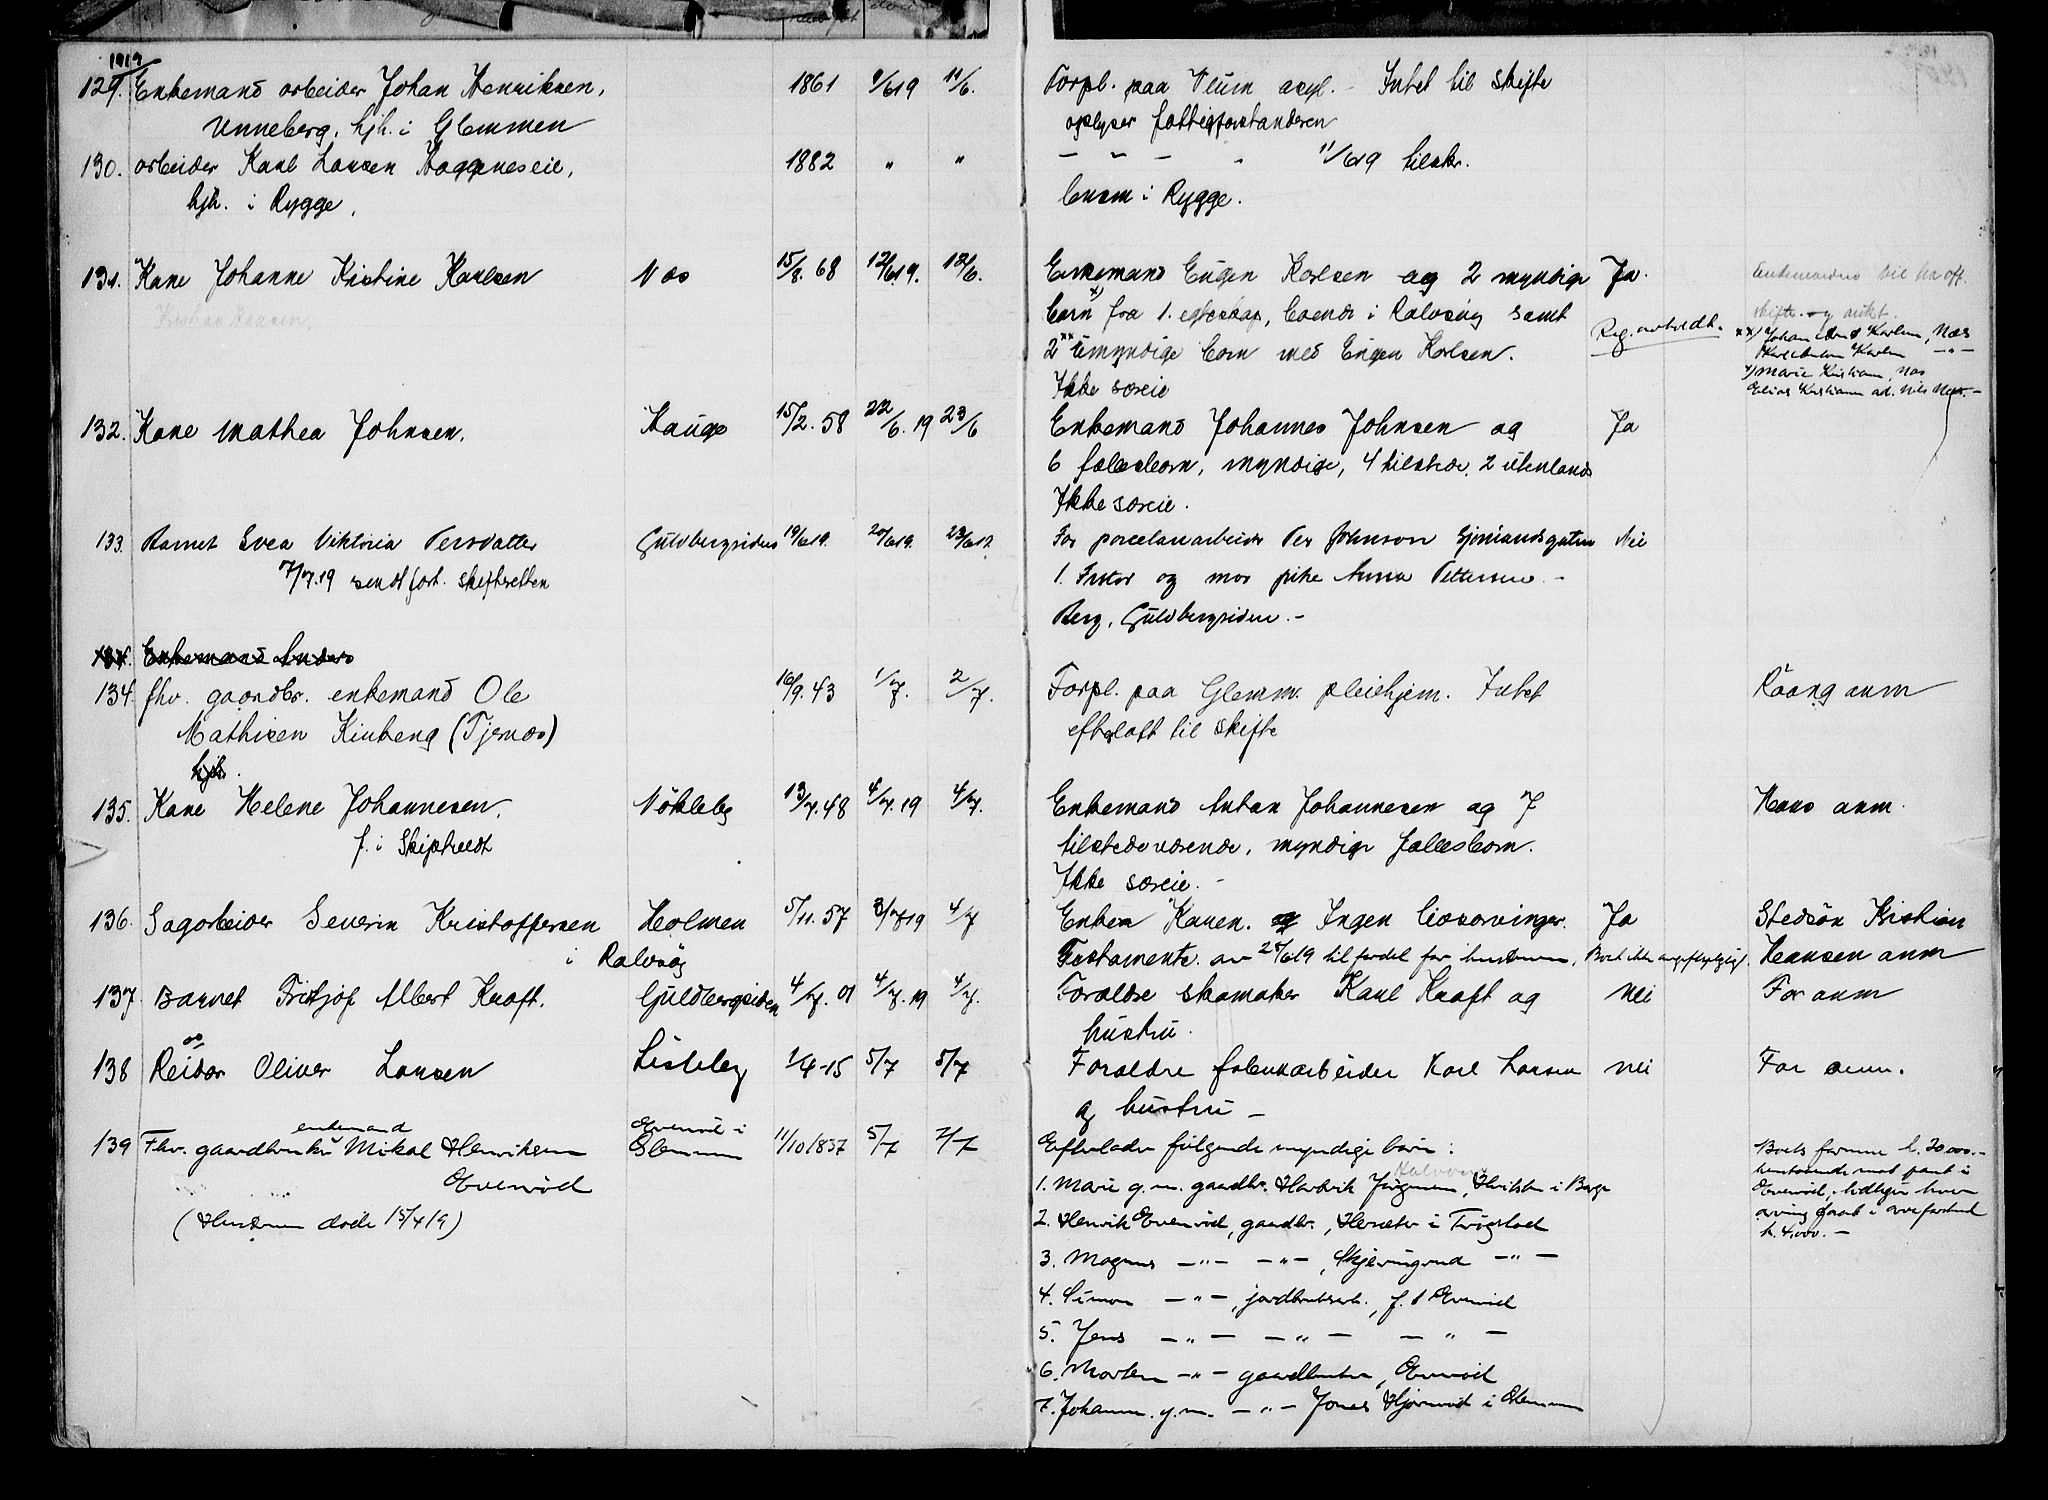 1919
129. Enkemand arbeider Johan Henriksen, 1861 9/6 19 11/6. Forpl. paa Veum asyl. - Intet til skifte
Unneberg, hjh. i Glemmen oplyser fattigforstanderen
130. arbeider Karl Larsen Haggeneseie, 1882 " " - " - " 11/6 19 tilskr.
hjh. i Rygge. lensm i Rygge.
131. Kone Johanne Kristine Karlsen Næs 15/8. 68 12/6 19. 12/6. Enkemand Eugen Karlsen og 2 myndige Ja. Enkemanden vil ha off.
Kristian Hansen. barn x) fra 1. egteskap, boende i Rolvsøy samt skifte og
2 xx umyndige barn med Eugen Karlsen. Reg. avholdt. xx) Johan Karlsen, Næs
Karl Anton Karlsen -"-
Ikke særeie x) Marie Kristians, Næs
Elias Kristians
132. Kone Mathea Johnsen. Hauge 15/2. 58 22/6. 19 23/6 Enkemand Johannes Johnsen og Ja
6 fælesbarn, myndige, 4 tilstede, 2 utenlands
Ikke særeie.
133. Barnet Svea Viktoria Persdatter Guldbergsiden 19/6 19. 20/6 19. 23/6 19. Far porcelænarbeider Per Johnson Nei
7/7. 19 sendt fort. skifteretten 1. Fr.stad og mor pike Anna Pettersen -
Berg, Guldbergsiden. -
134. Enkemand Anders
134. fhv. gaardbr. enkemand Ole 16/9. 43 1/7. 2/7. Forpl. paa Glemm. pleiehjem. Intet anm
Mathisen Kinberg (Tjernæs) efterlatt til skifte
hjh.
135. Kone Helene Johannesen. Nøkleby 13/7. 48 4/7. 19 4/7. Enkemand Anton Johannesen og 7 Hans anm.
f. i Skiptvedt tilstedeværende, myndige fællesbarn.
Ikke særeie. -
136. Sagarbeider Severin Kristoffersen Holmen 5/11. 57 3/7 19 4/7 Enken Karen. og Ingen livsarvinger. Ja Stedsøn Kristian
i Rolvsøy Testamente av 25/6 19 til fordel for hustruen. Boet ikke avgiftspligtig. Hansen anm
137. Barnet Fritjof Albert Kraft. Guldbergsiden 4/7. 01 4/7. 19 4/7. Forældre skomaker Karl Kraft og Nei Far anm
hustru.
138 do Reidar Oliver Larsen Lisleby 1/4-15 5/7 5/7 Forældre fabrikarbeider Karl Larsen nei Far anm.
og hustru -
139 Fhv. gaardbruker enkemand Mikal Henriksen Evenrød i Glemmen 11/10 1837 5/7 7/7 Efterlader følgende myndige barn: Boets formue k. 20.000.-
Evenrød 1. Marie g.m. gaardbr. Hartvik Jørgensen, i Borge bestaaende mot pant i
(Hustruen døde 15/4 19) 2. Henrik Evenrød, gaardbr., i Trøgstad Evenrød, tidligere hver
arving faat i arveforskud
k. 4.000. -
3. Magnus -"- -"-, Skjeringrud -"-
4. Simon -"-, jordbruksarb., f. t. Evenrød
5. Jens -"- -"- -"-
6. Morten -"- gaardbruker, Evenrød
7. Johanne. g.m. -"- Jonas Hjørnerød i Glemmen